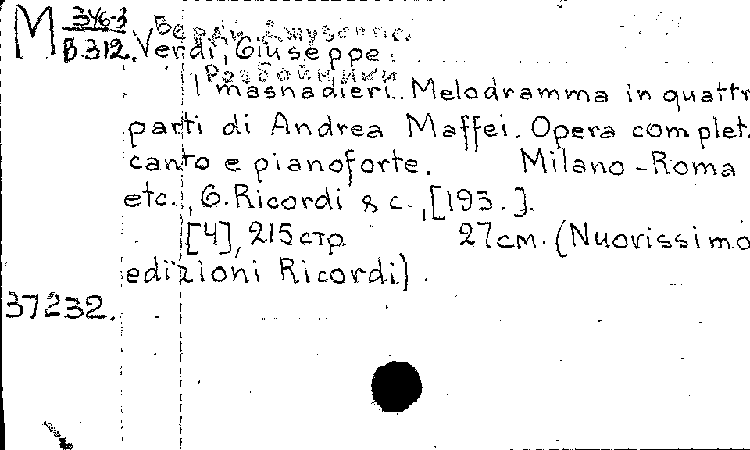 М 346-3 Верди, Джузеппе.
В 312. Verdi, Giuseppe.
Разбойники
I masnadieri. Melodramma in quattr
parti di Andrea Maffei. Opera complet.
canto e pianoforte. Milano - Roma
etc., G. Ricordi & c., [193.].
[4], 215 стр 27 см. (Nuovissimo
edizioni Ricordi).
37232.